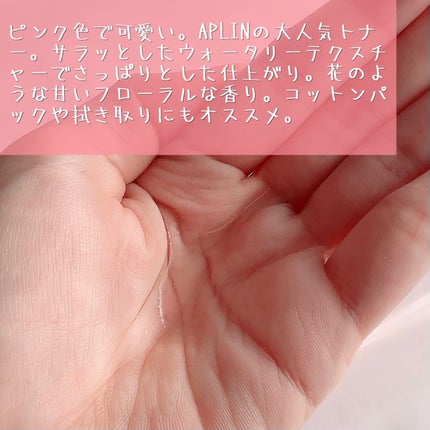 ピンク色で可愛い。APLINの大人気トナ
ー。サラッとしたウォータリーテクスチ
ャーでさっぱりとした仕上がり。花のよ
うな甘いフローラルな香り。コットンパ
ックや拭き取りにもオススメ。